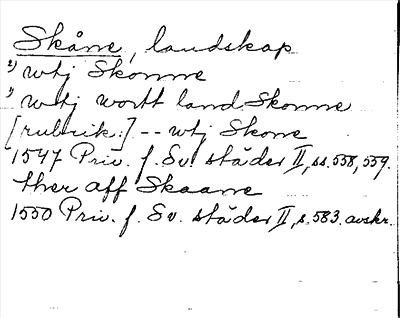 Skåne, landskap
2) wtj Skonne
1) wtj wortt land Skonne
[rubrik:] -- wtj Skone
1547 Priv. f. Sv. städer II, ss. 558, 559.
ther aff Skaane
1550 Priv. f. Sv. städer II, s. 583. avskr.